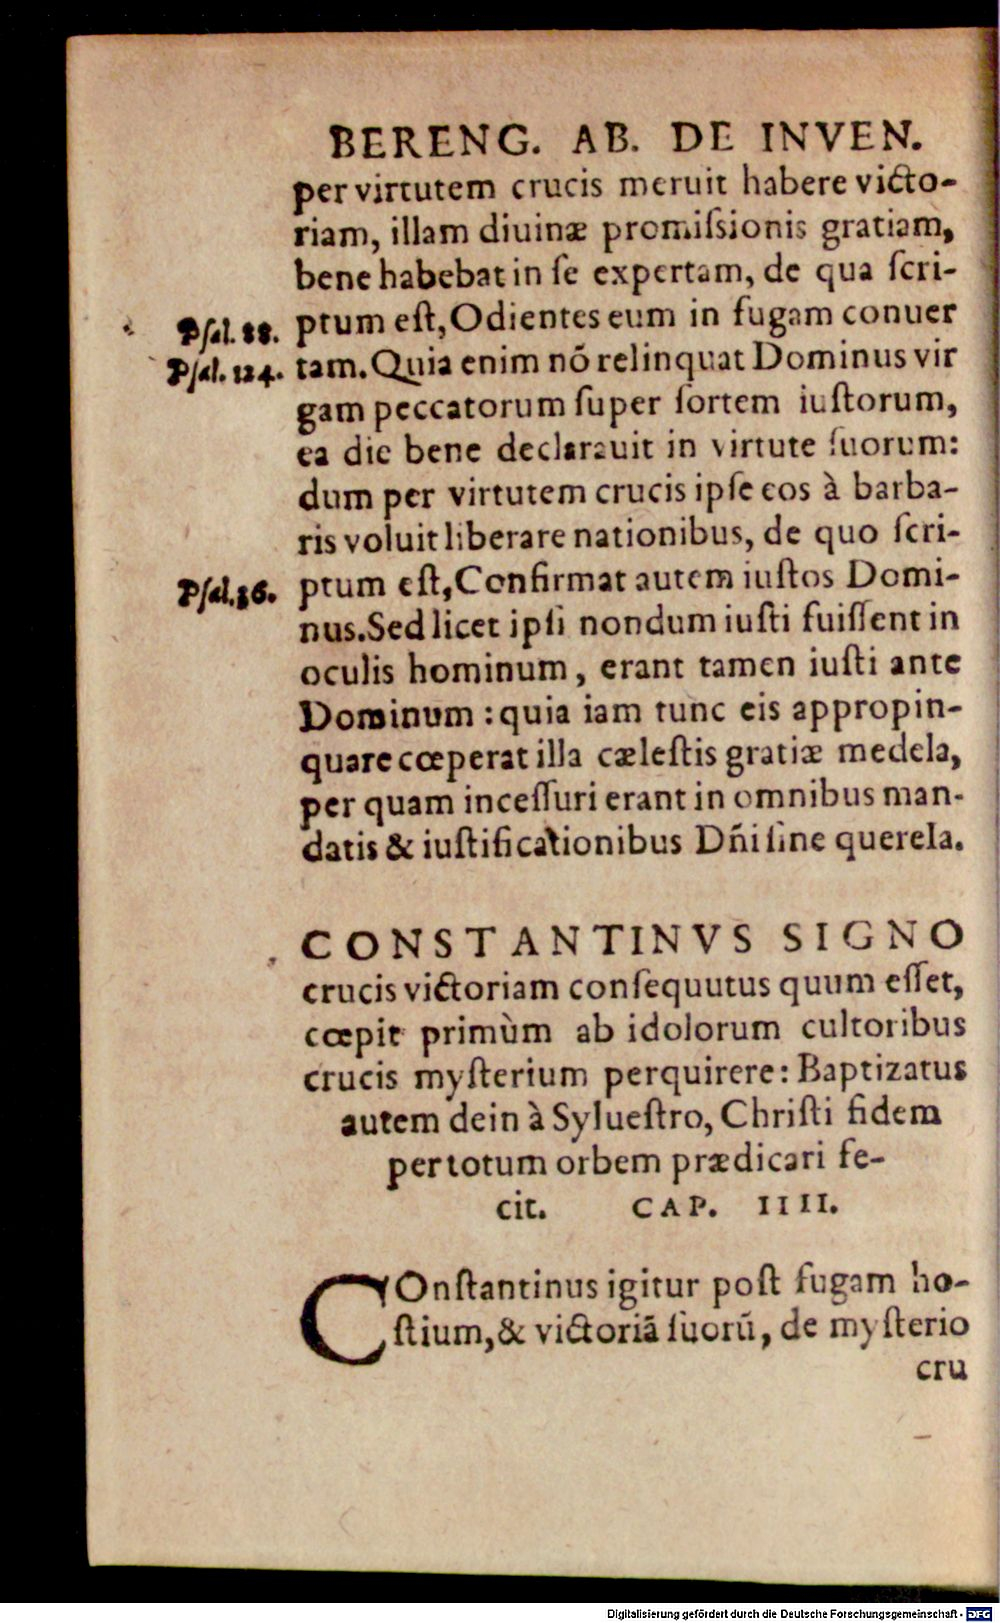 BERENG. AB. DE INVEN.
per virtutem crucis meruit habere victo-
riam, illam diuinæ promiſsionis gratiam,
bene habebat in ſe expertam, de qua ſcri-
Pſal. 88. ptum eſt, Odientes eum in fugam conuer
Pſal. 124. tam. Quia enim nõ relinquat Dominus vir
gam peccatorum ſuper ſortem iuſtorum,
ea die bene declarauit in virtute ſuorum:
dum per virtutem crucis ipſe eos à barba-
ris voluit liberare nationibus, de quo ſcri-
Pſal. 36. ptum eſt, Confirmat autem iuſtos Domi-
nus. Sed licet ipſi nondum iuſti fuiſſent in
oculis hominum, erant tamen iuſti ante
Dominum: quia iam tunc eis appropin-
quare cœperat illa cæleſtis gratiæ medela,
per quam inceſſuri erant in omnibus man-
datis & iuſtificationibus Dñi ſine querela.
CONSTANTINVS SIGNO
crucis victoriam conſequutus quum eſſet,
cœpit primùm ab idolorum cultoribus
crucis myſterium perquirere: Baptizatus
autem dein à Sylueſtro, Chriſti fidem
per totum orbem prædicari fe-
cit. CAP. IIII.
COnſtantinus igitur poſt fugam ho-
ſtium, & victoriã ſuorũ, de myſterio
cru
Digitalisierung gefördert durch die Deutsche Forschungsgemeinschaft - DFG